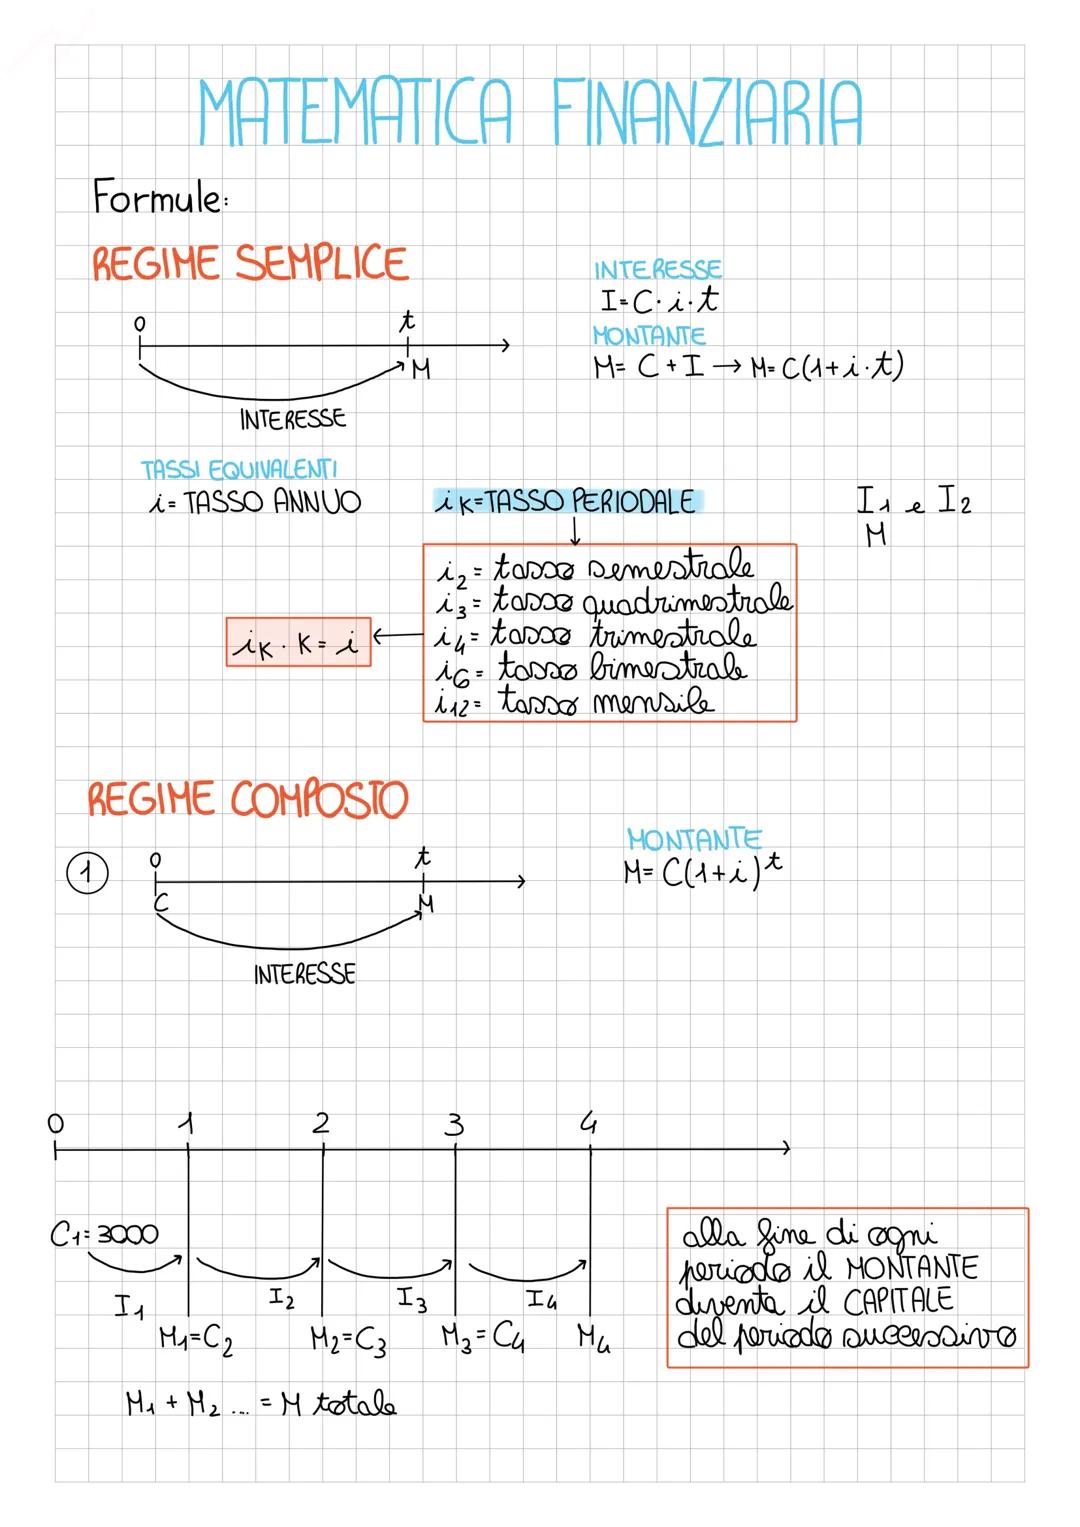 MATEMATICA FINANZIARIA
Formule:
REGIME SEMPLICE
0 t
M
INTERESSE
INTERESSE
I=C·i·t
MONTANTE
M= C+I → M= C(1+i·t)
TASSI EQUIVALENTI
i= TASSO ANNUO
iK=TASSO PERIODALE
I1 e I2
M
i2= tasso semestrale
i3= tasso quadrimestrale
i4= tasso trimestrale
i6= tasso bimestrale
i12= tasso mensile
iK· K= i
REGIME COMPOSTO
1
0 t
C M
INTERESSE
MONTANTE
M= C(1+i)^t
0 1 2 3 4
C1= 3000
I1 I2 I3 I4
M1=C2 M2=C3 M3=C4 M4
alla fine di ogni
periodo il MONTANTE
diventa il CAPITALE
del periodo successivo
M1 + M2 ... = M totale